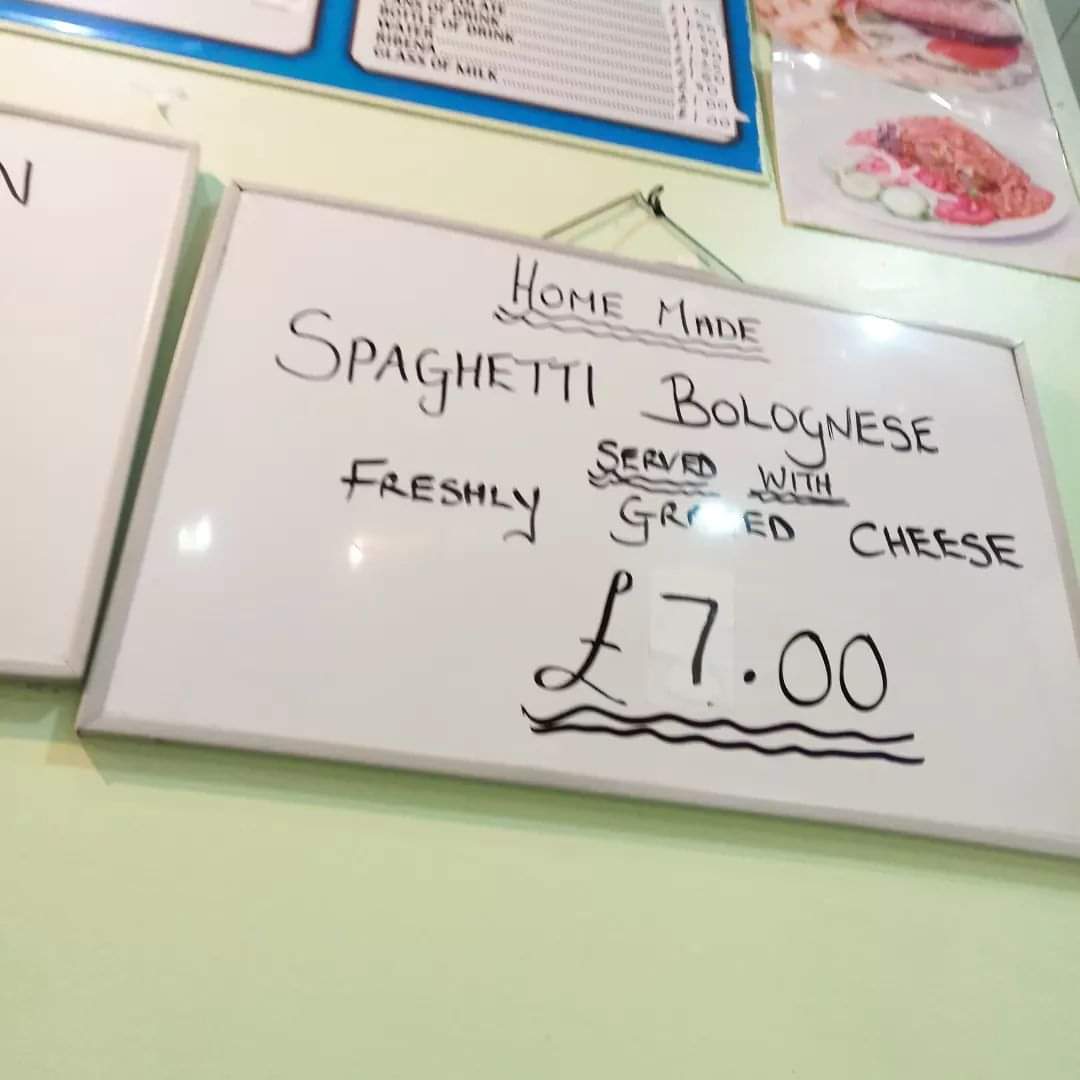 OF DRINK
WATER
RIBENA
GLASS OF MILK
1.00
1.00
N
HOME MADE
SPAGHETTI BOLOGNESE
SERVED WITH
FRESHLY GRATED CHEESE
£7.00